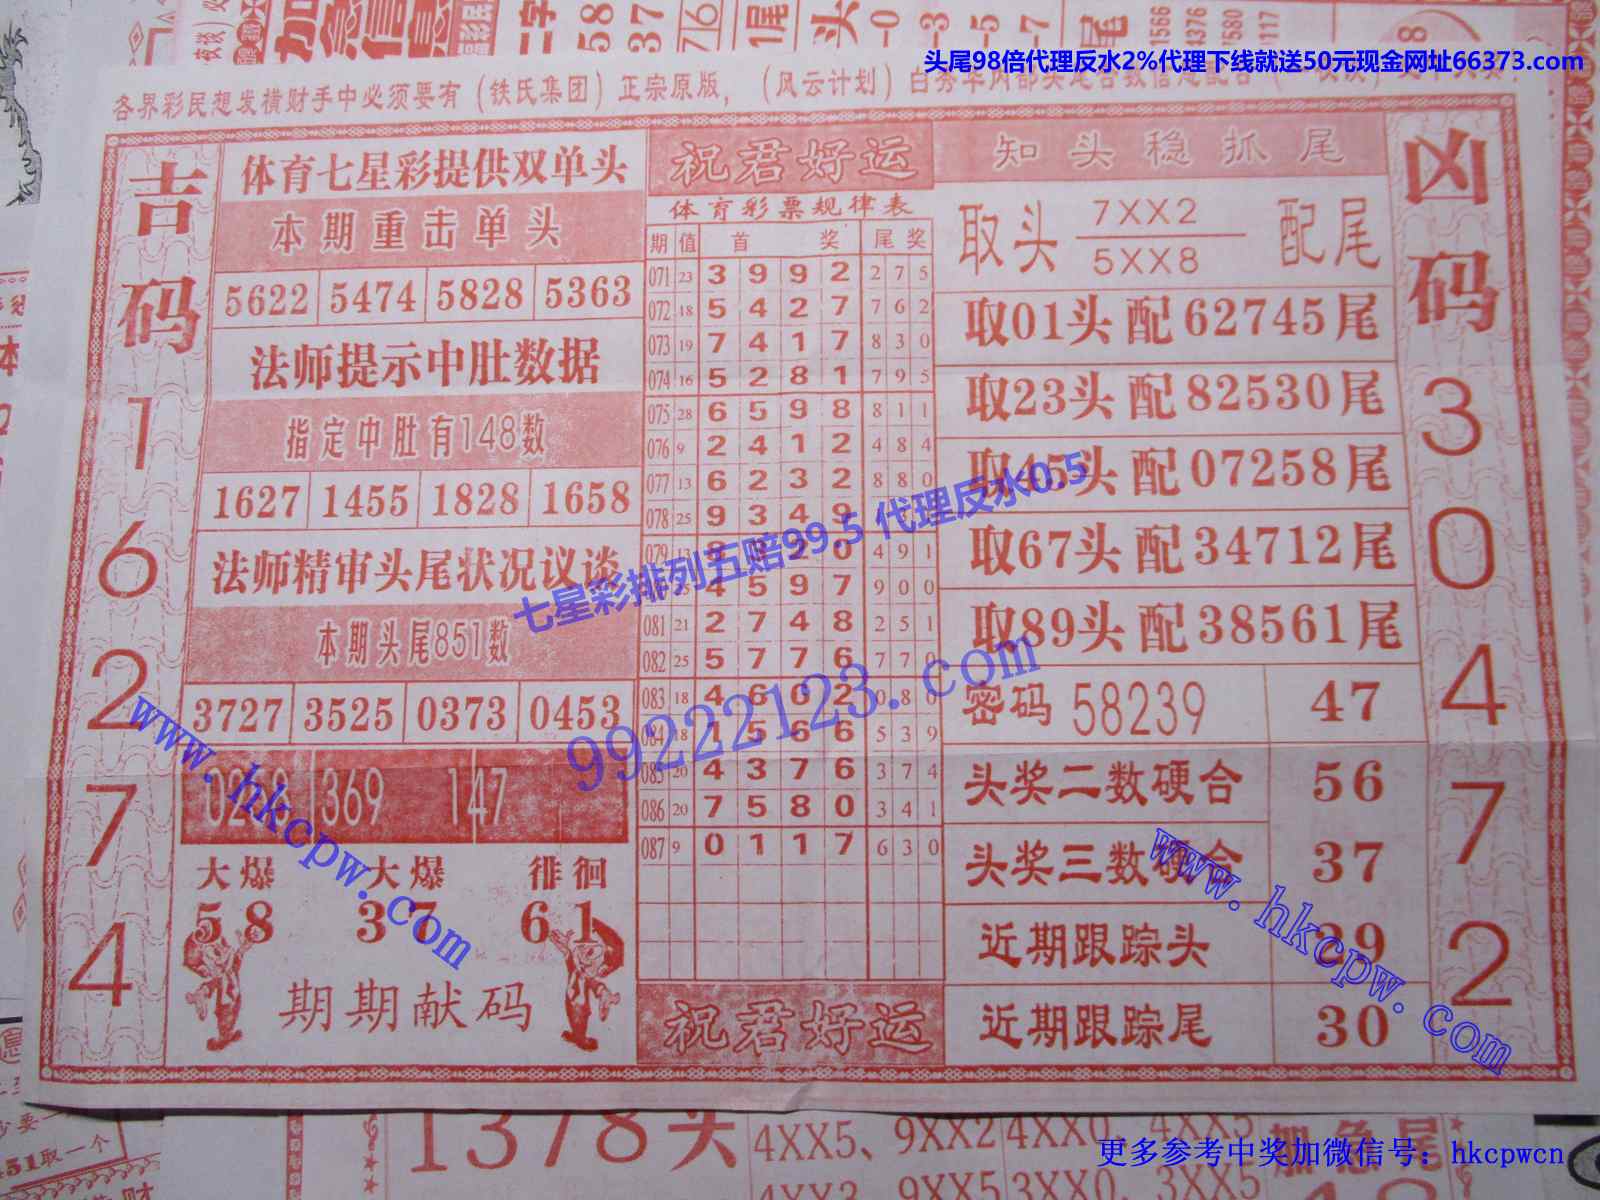 加急信息
头尾98倍代理反水2%代理下线就送50元现金网址66373.com
各界彩民想发横财手中必须要有（铁氏集团）正宗原版，（风云计划）
吉码
1
6
2
7
4
体育七星彩提供双单头
本期重击单头
5622 5474 5828 5363
法师提示中肚数据
指定中肚有148数
1627 1455 1828 1658
法师精审头尾状况议谈
本期头尾851数
3727 3525 0373 0453
369 147
大爆 大爆 徘徊
58 37 61
期期献码
祝君好运
体育彩票规律表
期 值 首 奖 尾奖
071 23 3 9 9 2 2 7 5
072 18 5 4 2 7 7 6 2
073 19 7 4 1 7 8 3 0
074 16 5 2 8 1 7 9 5
075 28 6 5 9 8 8 1 1
076 9 2 4 1 2 4 8 4
077 13 6 2 3 2 8 8 0
078 25 9 3 4 9
079 2 0 4 9 1
4 5 9 7 9 0 0
081 21 2 7 4 8 2 5 1
082 25 5 7 7 6 7 7 0
083 18 4 6 0 2 0 8 0
084 18 1 5 6 6 5 3 9
085 20 4 3 7 6 3 7 4
086 20 7 5 8 0 3 4 1
087 9 0 1 1 7 6 3 0
祝君好运
知头稳抓尾
取头 7XX2 配尾
5XX8
取01头配62745尾
取23头配82530尾
取45头配07258尾
取67头配34712尾
取89头配38561尾
密码 58239 47
头奖二数硬合 56
头奖三数硬合 37
近期跟踪头 29
近期跟踪尾 30
凶码
3
0
4
7
2
七星彩排列五赔99.5 代理反水0.5
99222123.com
www.hkcpw.com
www.hkcpw.com
1378头
4XX5、9XX2 4XX0、4XX5
加急尾
更多参考中奖加微信号：hkcpwcn